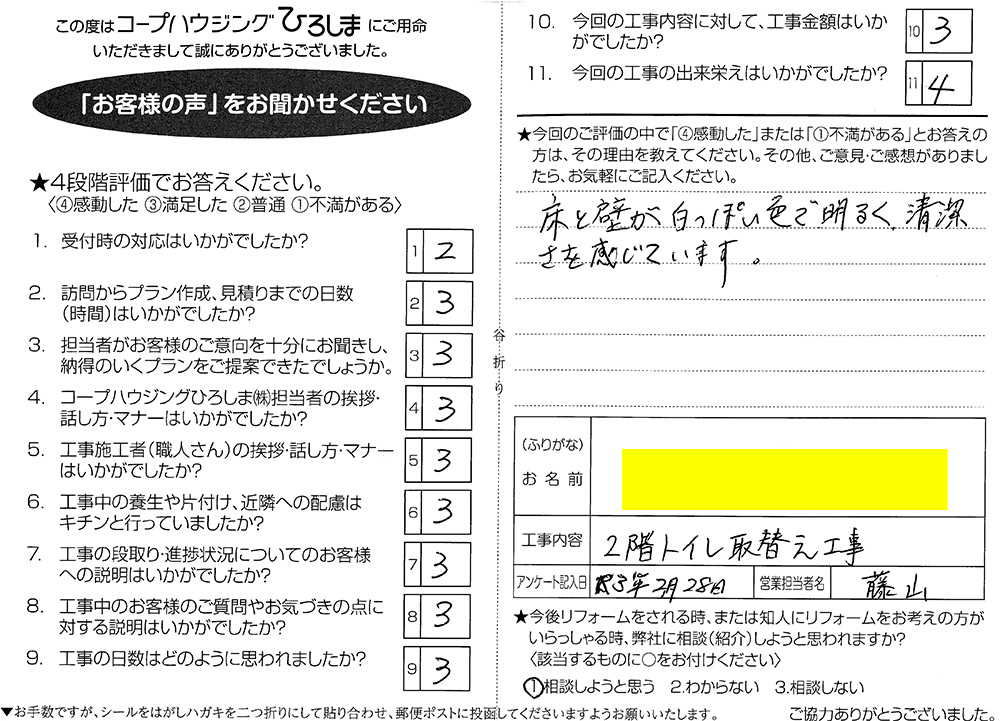 この度はコープハウジングひろしまにご用命
いただきまして誠にありがとうございました。
「お客様の声」をお聞かせください
★4段階評価でお答えください。
〈④感動した ③満足した ②普通 ①不満がある〉
1. 受付時の対応はいかがでしたか?
1 2
2. 訪問からプラン作成、見積りまでの日数
(時間)はいかがでしたか?
2 3
3. 担当者がお客様のご意向を十分にお聞きし、
納得のいくプランをご提案できたでしょうか。
3 3
4. コープハウジングひろしま㈱担当者の挨拶・
話し方・マナーはいかがでしたか?
4 3
5. 工事施工者(職人さん)の挨拶・話し方・マナー
はいかがでしたか?
5 3
6. 工事中の養生や片付け、近隣への配慮は
キチンと行っていましたか?
6 3
7. 工事の段取り・進捗状況についてのお客様
への説明はいかがでしたか?
7 3
8. 工事中のお客様のご質問やお気づきの点に
対する説明はいかがでしたか?
8 3
9. 工事の日数はどのように思われましたか?
9 3
▼お手数ですが、シールをはがしハガキを二つ折りにして貼り合わせ、郵便ポストに投函してくださいますようお願いいたします。
谷折り
10. 今回の工事内容に対して、工事金額はいか
がでしたか?
10 3
11. 今回の工事の出来栄えはいかがでしたか?
11 4
★今回のご評価の中で「④感動した」または「①不満がある」とお答えの
方は、その理由を教えてください。その他、ご意見・ご感想がありまし
たら、お気軽にご記入ください。
床と壁が白っぽい色で明るく、清潔
さを感じています。
(ふりがな)
お名前
工事内容 2階トイレ取替え工事
アンケート記入日 R3年2月28日 営業担当者名 藤山
★今後リフォームをされる時、または知人にリフォームをお考えの方が
いらっしゃる時、弊社に相談(紹介)しようと思われますか?
〈該当するものに○をお付けください〉
①相談しようと思う 2.わからない 3.相談しない
ご協力ありがとうございました。